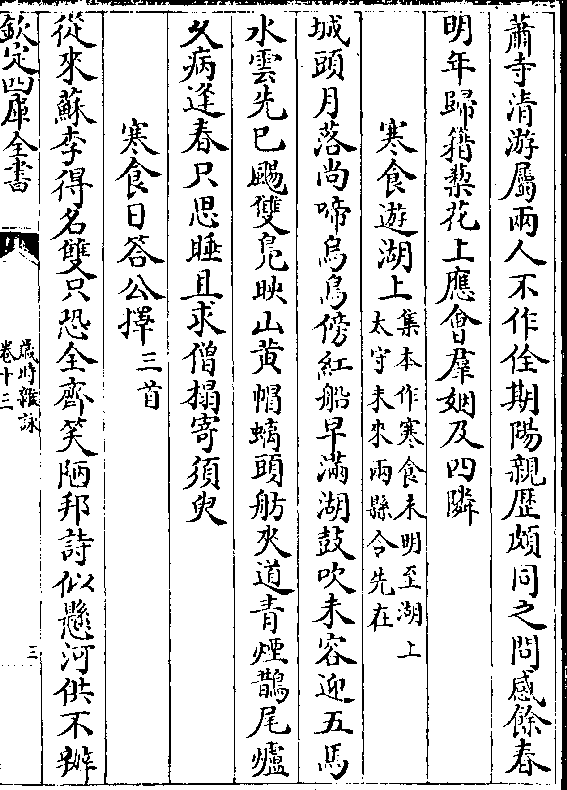 蕭寺清游屬兩人不作佺期陽親歴頗同之問感餘春
明年歸籍棃花上應會羣姻及四隣
寒食遊湖上
集本作寒食未明至湖上
太守未來兩縣令先在
城頭月落尚啼烏烏傍紅船早滿湖鼓吹未容迎五馬
水雲先已颺雙鳬映山黄帽螭頭舫夾道青煙鵲尾爐
久病逢春只思睡且求僧榻寄須臾
寒食日答公擇三首
從來蘇李得名雙只恐全齊笑陋邦詩似懸河供不辦
欽定四庫全書
歳時雜詠
卷十三
三